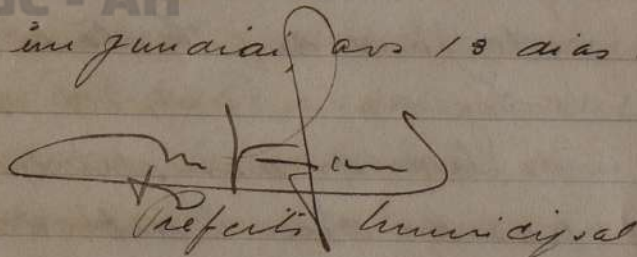 em Jundiaí, aos 13 dias
Prefeito Municipal